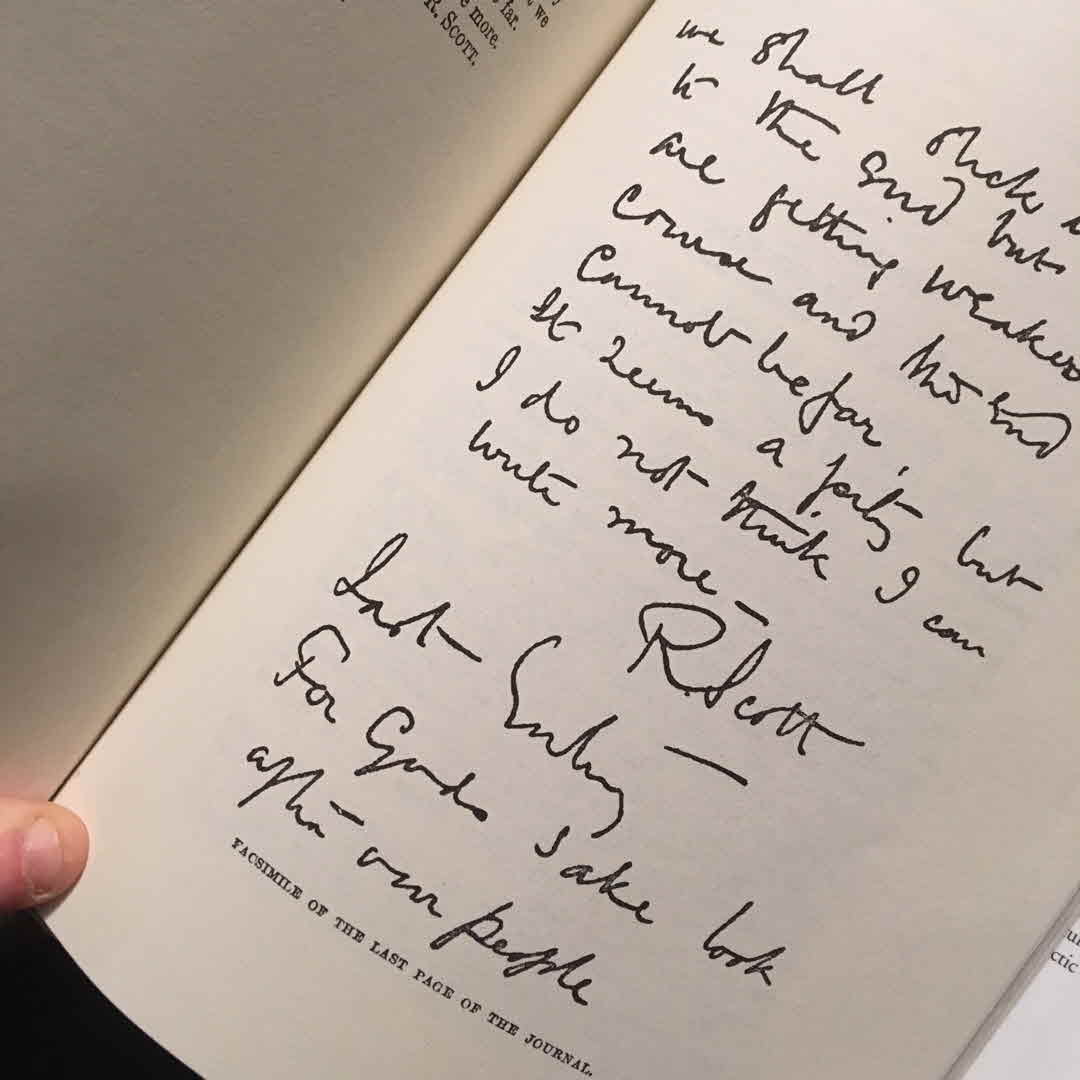 we
far.
more.
R. SCOTT.
we shall stick
to the end but
are getting weaker
course and the end
cannot be far.
It seems a pity but
I do not think I can
write more –
R. Scott
Last Entry –
For Gods sake look
after our people
FACSIMILE OF THE LAST PAGE OF THE JOURNAL.
ctic